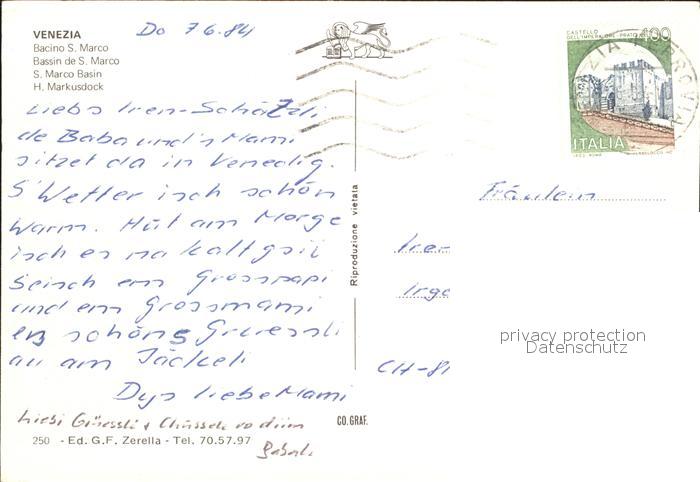 VENEZIA
Bacino S. Marco
Bassin de S. Marco
S. Marco Basin
H. Markusdock
Do 7.6.84
Liebs Iren-Schätzli
de Baba und's Mami
sitzet da in Venedig.
S'Wetter isch schön
warm. Hüt am Morge
isch es na kalt gsii
Seisch em Grosspapi
und em Grossmami
en schöns Gruessli
au am Jäckeli
Dys liebe Mami
Liebi Grüessli + Chüssli vo diim
Babali
250 - Ed. G.F. Zerella - Tel. 70.57.97
Riproduzione vietata
CO. GRAF.
CASTELLO
DELL'IMPERATORE PRATO
400
ITALIA
Fräulein
Ire-
CH-81
privacy protection
Datenschutz